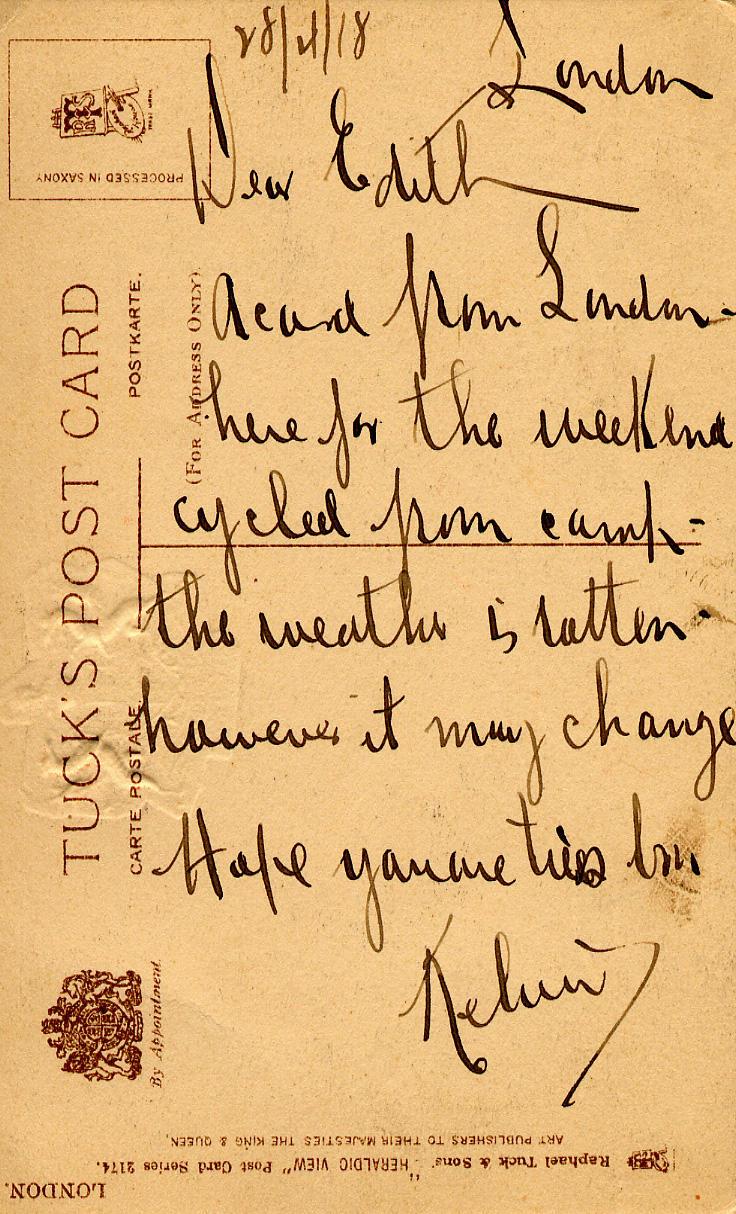 28/4/18
London
Dear Edith
A card from London -
here for the weekend
cycled from camp -
the weather is rotten.
however it may change
Hope you are
Kelvin
TUCK'S POST CARD
CARTE POSTALE.
POSTKARTE.
(FOR ADDRESS ONLY).
PROCESSED IN SAXONY
By Appointment.
Raphael Tuck & Sons' "HERALDIC VIEW" Post Card Series 2174.
ART PUBLISHERS TO THEIR MAJESTIES THE KING & QUEEN,
LONDON.